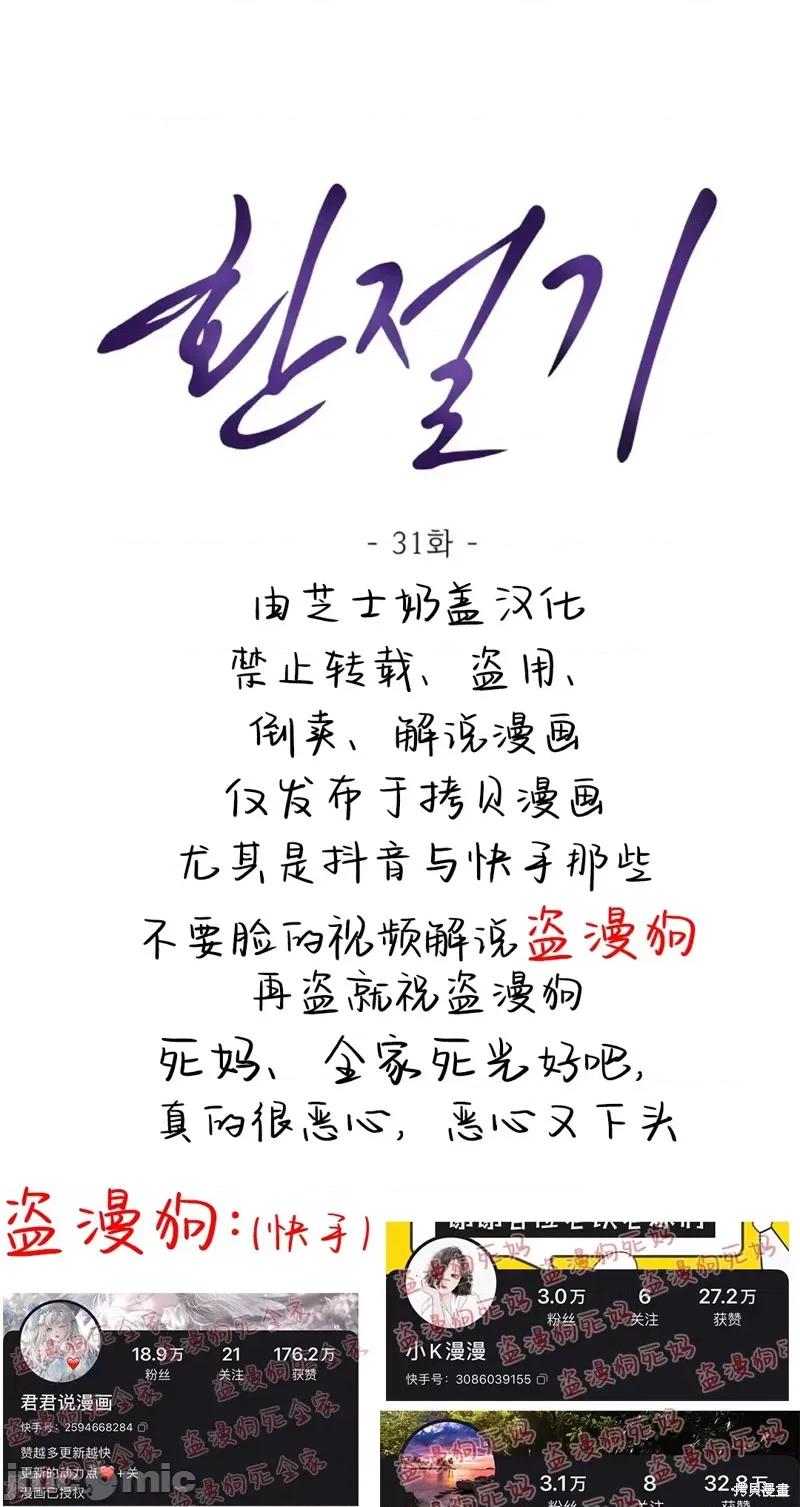 환절기
- 31화 -
由芝士奶盖汉化
禁止转载、盗用、
倒卖、解说漫画
仅发布于拷贝漫画
尤其是抖音与快手那些
不要脸的视频解说盗漫狗
再盗就祝盗漫狗
死妈、全家死光好吧,
真的很恶心,恶心又下头
盗漫狗:(快手)
18.9万 21 176.2万
粉丝 关注 获赞
君君说漫画
快手号:2594668284
赞越多更新越快
更新的动力点❤️+关
漫画已授权
盗漫狗死全家
盗漫狗死全家
盗漫狗死全家
3.0万 6 27.2万
粉丝 关注 获赞
小K漫漫
快手号:3086039155
盗漫狗死妈
盗漫狗死妈
盗漫狗死妈
盗漫狗死妈
3.1万 8 32.8万
盗漫狗死妈
拷贝漫畫